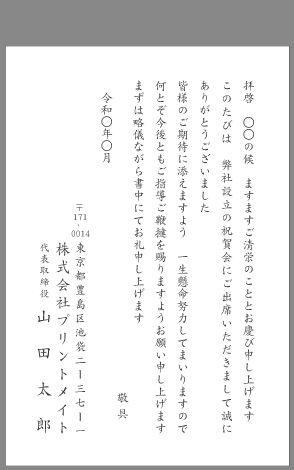 拝啓　〇〇の候　ますますご清栄のこととお慶び申し上げます
このたびは　弊社設立の祝賀会にご出席いただきまして誠に
ありがとうございました
皆様のご期待に添えますよう　一生懸命努力してまいりますので
何とぞ今後ともご指導ご鞭撻を賜りますようお願い申し上げます
まずは略儀ながら書中にてお礼申し上げます
敬具
令和〇年〇月
〒171-0014
東京都豊島区池袋二ー三七ー一
株式会社プリントメイト
代表取締役　山田太郎